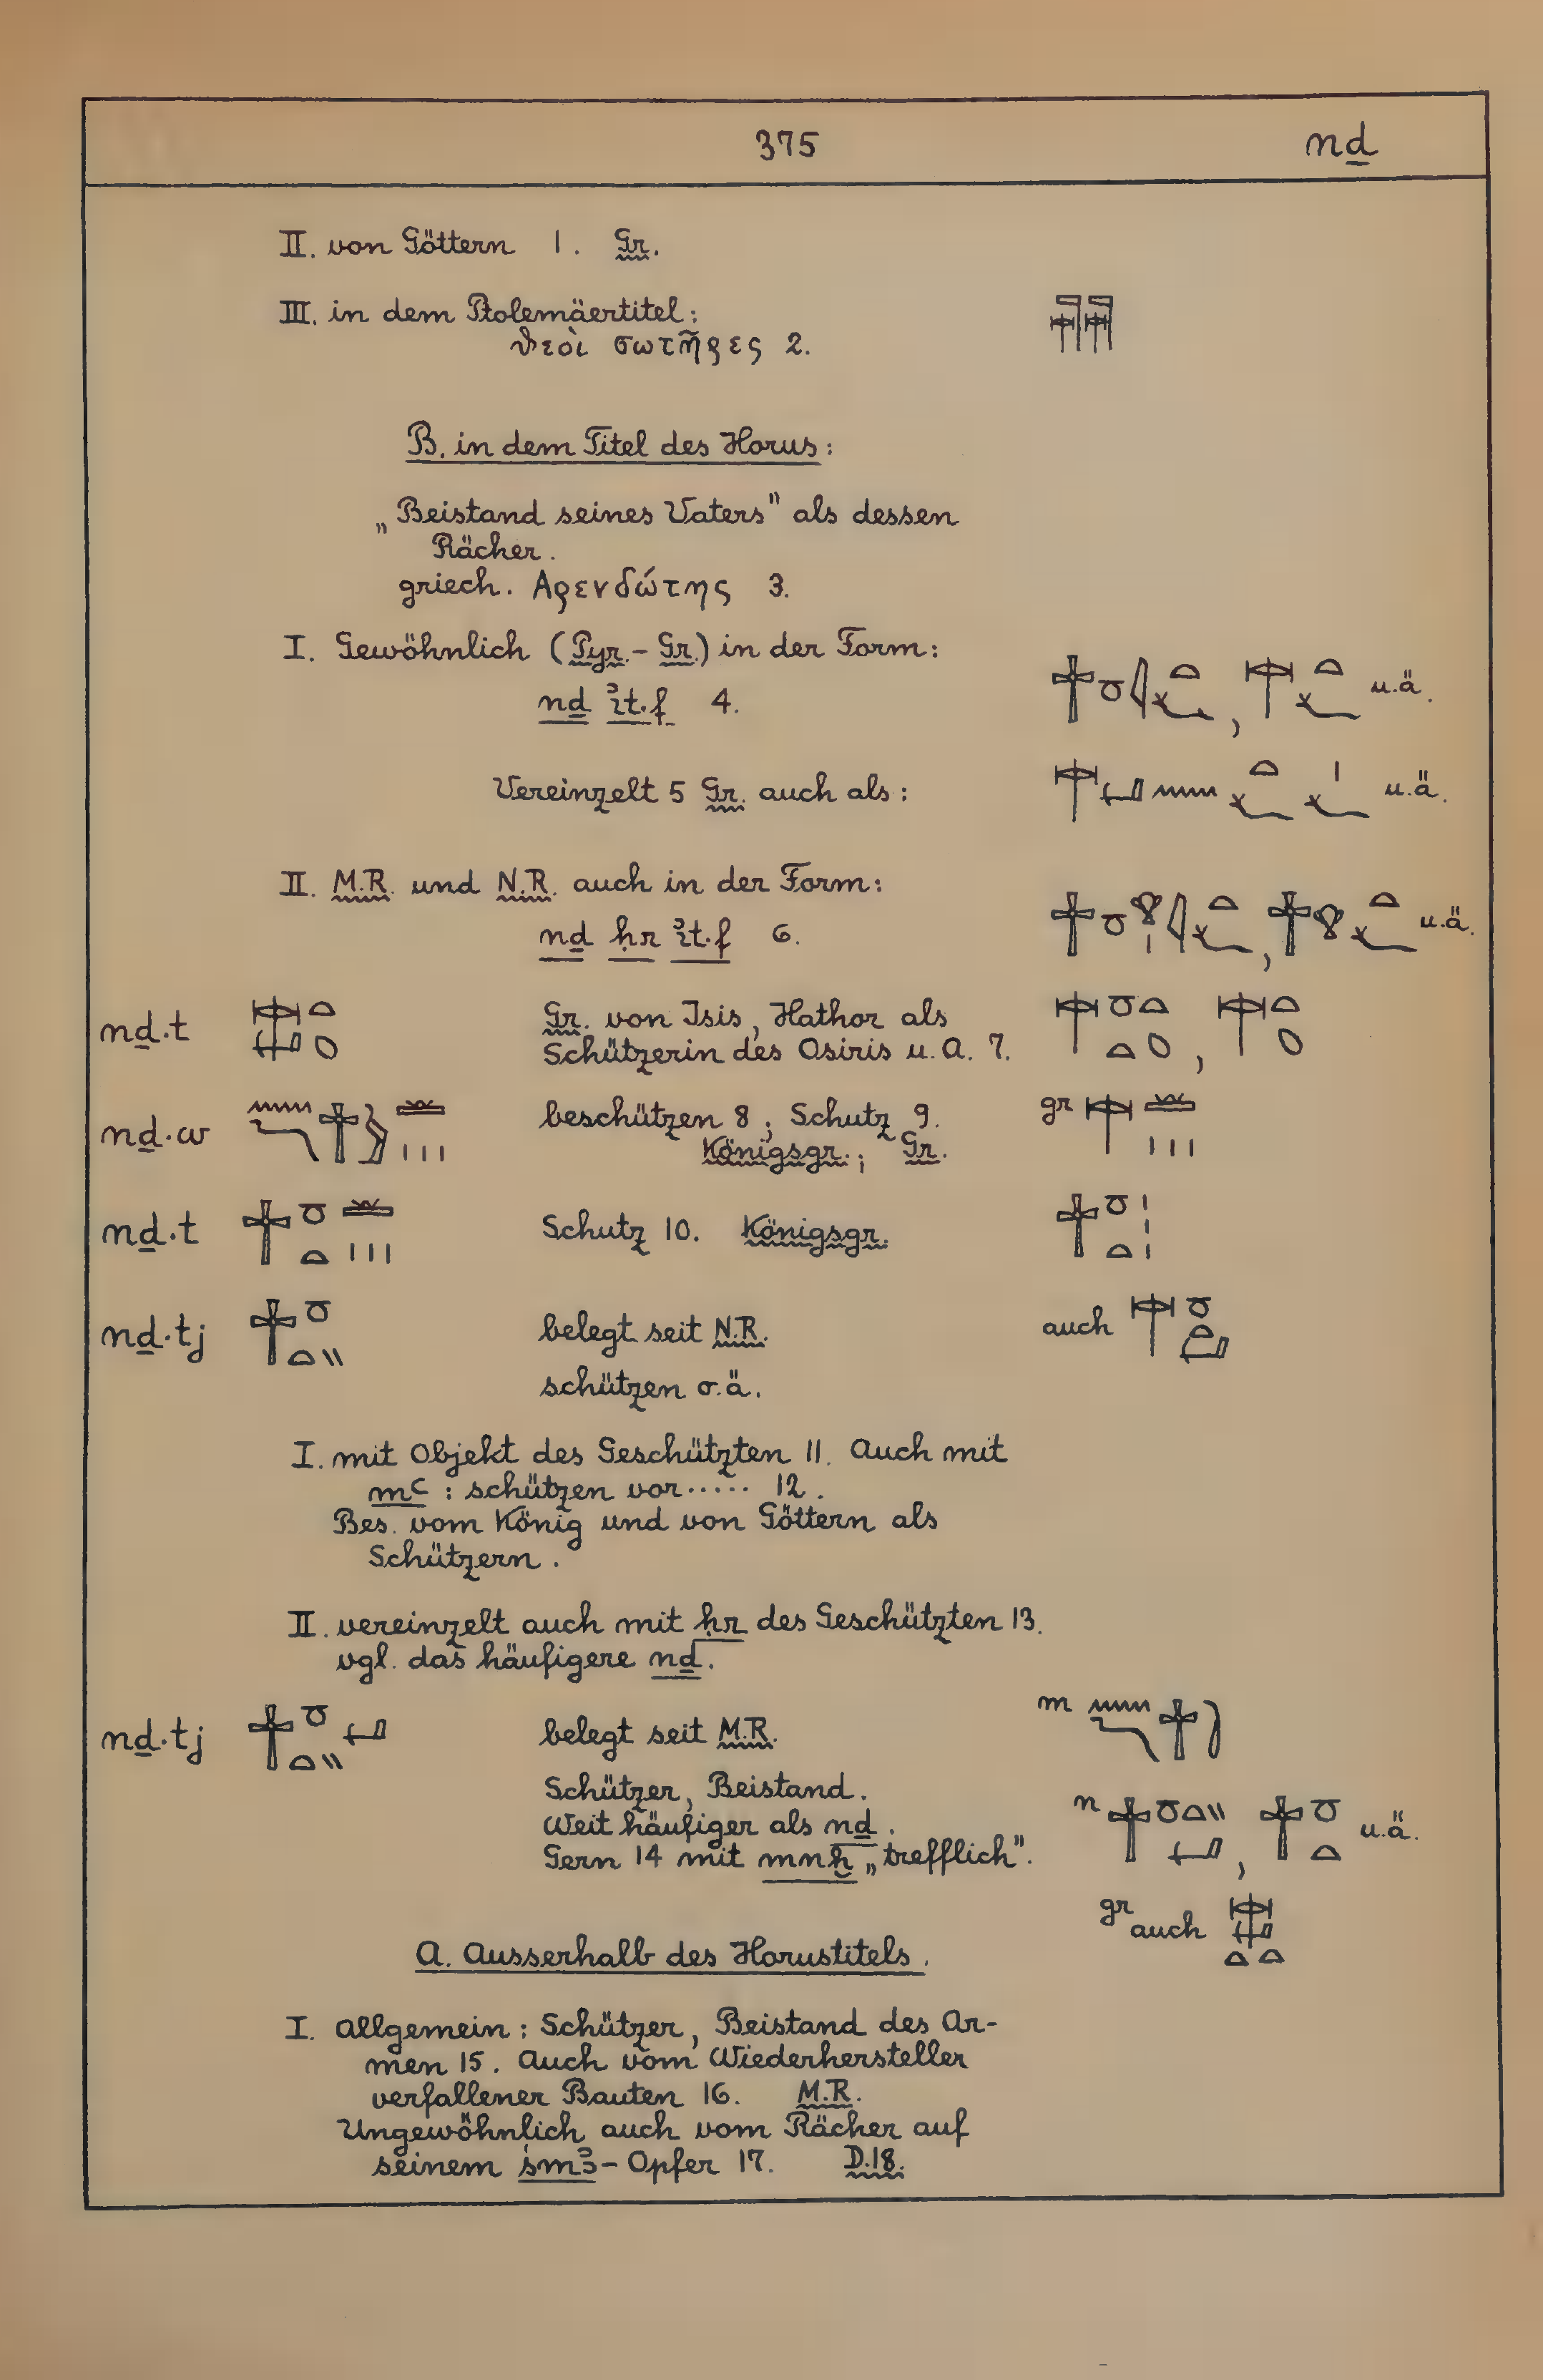 375 nḏ
II. von Göttern 1. Gr.
III. in dem Ptolemäertitel:
ϑεοὶ σωτῆρες 2.
B. in dem Titel des Horus:
„Beistand seines Vaters" als dessen
Rächer.
griech. Αρενδώτης 3.
I. Gewöhnlich (Pyr. - Gr.) in der Form:
nḏ ꞽt.f 4. u.ä.
Vereinzelt 5 Gr. auch als: u.ä.
II. M.R. und N.R. auch in der Form:
nḏ ḥr ꞽt.f 6. u.ä.
nḏ.t Gr. von Isis, Hathor als
Schützerin des Osiris u. A. 7.
nḏ.w beschützen 8; Schutz 9. gr
Königsgr.; Gr.
nḏ.t Schutz 10. Königsgr.
nḏ.tj belegt seit N.R. auch
schützen o.ä.
I. mit Objekt des Geschützten 11. Auch mit
mꜥ : schützen vor ..... 12.
Bes. vom König und von Göttern als
Schützern.
II. vereinzelt auch mit ḥr des Geschützten 13.
vgl. das häufigere nḏ.
nḏ.tj belegt seit M.R. m
Schützer, Beistand.
Weit häufiger als nḏ. n u.ä.
Gern 14 mit mnḫ „trefflich".
gr auch
A. Ausserhalb des Horustitels.
I. allgemein: Schützer, Beistand des Ar-
men 15. Auch vom Wiederhersteller
verfallener Bauten 16. M.R.
Ungewöhnlich auch vom Rächer auf
seinem śmꜣ - Opfer 17. D.18.